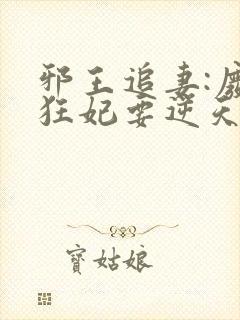 邪王追妻:廢
狂妃要逆天
寳姑娘